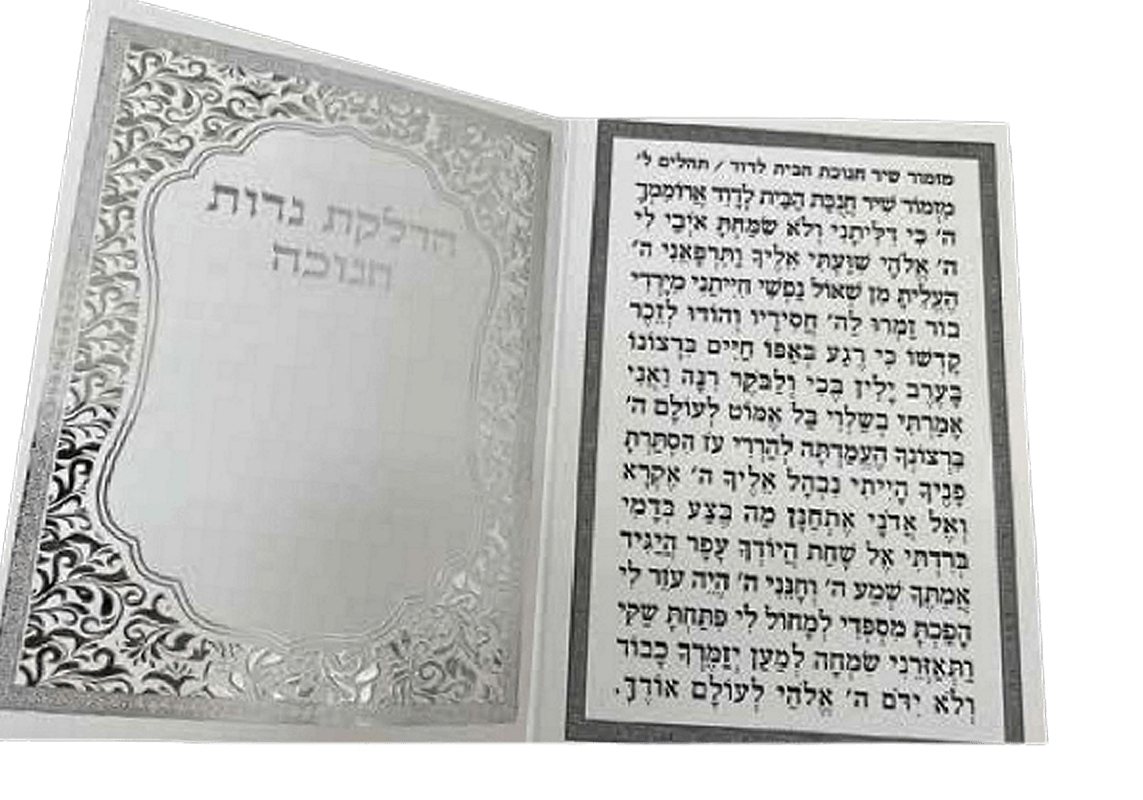 הדלקת נרות
חנוכה
מזמור שיר חנוכת הבית לדוד / תהלים ל'
מִזְמוֹר שִׁיר חֲנֻכַּת הַבַּיִת לְדָוִד אֲרוֹמִמְךָ
ה' כִּי דִלִּיתָנִי וְלֹא שִׂמַּחְתָּ אוֹיְבַי לִי
ה' אֱלֹהָי שִׁוַּעְתִּי אֵלֶיךָ וַתִּרְפָּאֵנִי ה'
הֶעֱלִיתָ מִן שְׁאוֹל נַפְשִׁי חִיִּיתַנִי מִיָּרְדִי
בוֹר זַמְּרוּ לַה' חֲסִידָיו וְהוֹדוּ לְזֵכֶר
קָדְשׁוֹ כִּי רֶגַע בְּאַפּוֹ חַיִּים בִּרְצוֹנוֹ
בָּעֶרֶב יָלִין בֶּכִי וְלַבֹּקֶר רִנָּה וַאֲנִי
אָמַרְתִּי בְשַׁלְוִי בַּל אֶמּוֹט לְעוֹלָם ה'
בִּרְצוֹנְךָ הֶעֱמַדְתָּה לְהַרְרִי עֹז הִסְתַּרְתָּ
פָנֶיךָ הָיִיתִי נִבְהָל אֵלֶיךָ ה' אֶקְרָא
וְאֶל אֲדֹנָי אֶתְחַנָּן מַה בֶּצַע בְּדָמִי
בְּרִדְתִּי אֶל שָׁחַת הֲיוֹדְךָ עָפָר הֲיַגִּיד
אֲמִתֶּךָ שְׁמַע ה' וְחָנֵּנִי ה' הֱיֵה עוֹזֵר לִי
הָפַכְתָּ מִסְפְּדִי לְמָחוֹל לִי פִּתַּחְתָּ שַׂקִּי
וַתְּאַזְּרֵנִי שִׂמְחָה לְמַעַן יְזַמֶּרְךָ כָבוֹד
וְלֹא יִדֹּם ה' אֱלֹהַי לְעוֹלָם אוֹדֶךָּ.